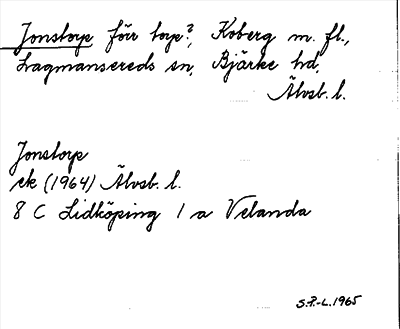 Jonstorp förr torp?, Koberg m. fl.,
Lagmansereds sn, Bjärke hd,
Älvsb. l.
Jonstorp
ek (1964) Älvsb. l.
8 C Lidköping 1 a Velanda
S.P.-L. 1965